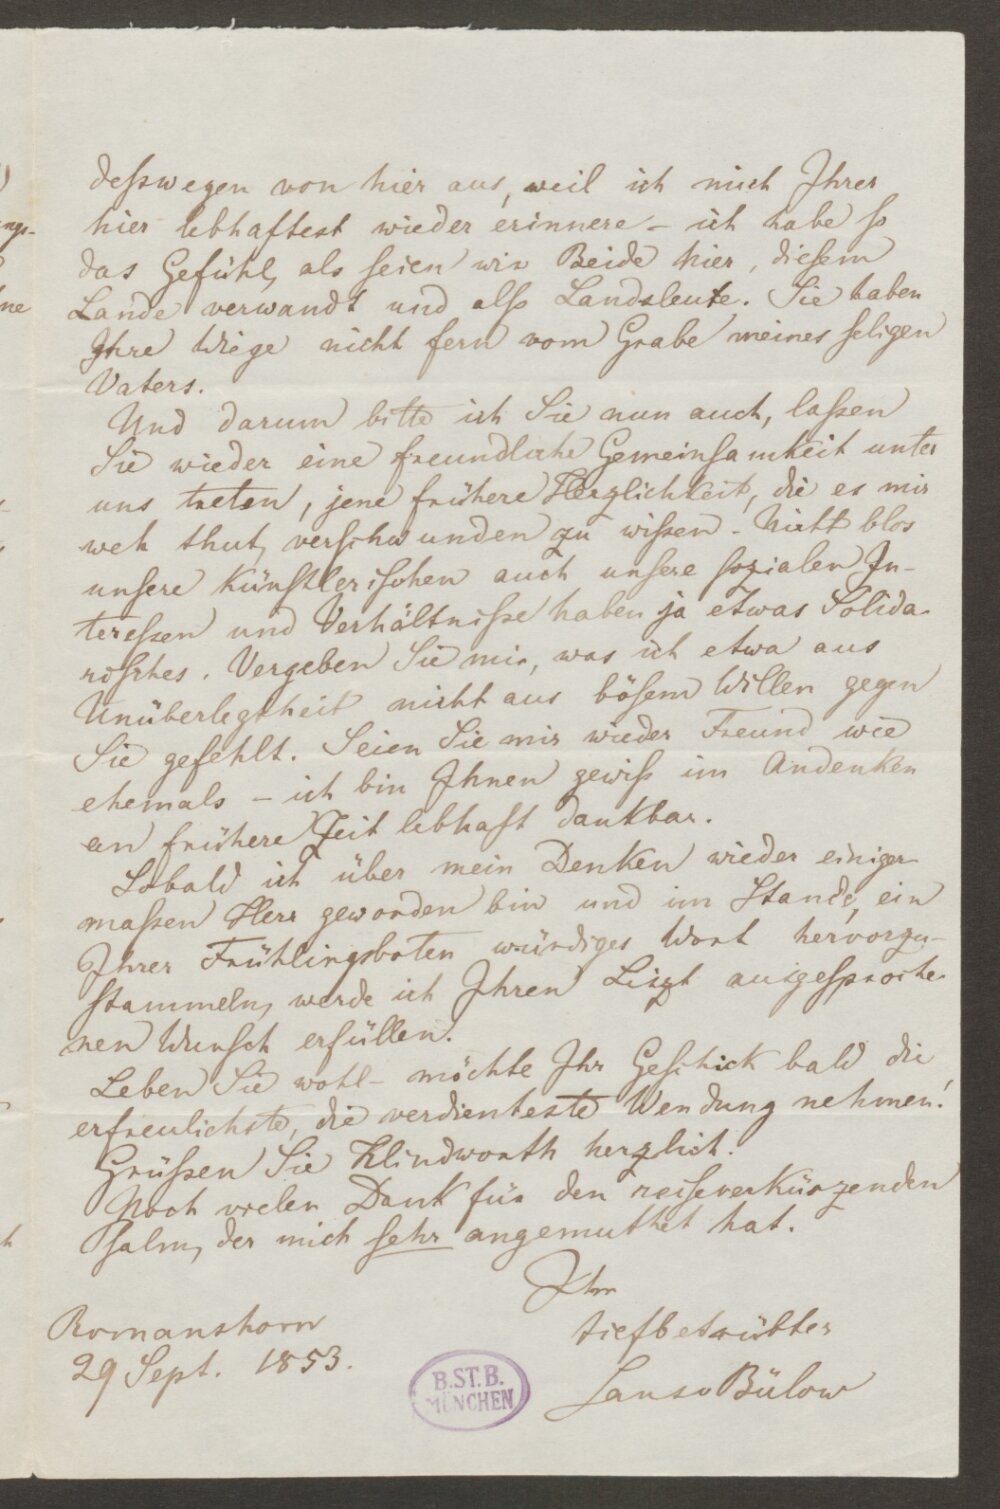 deßwegen von hier aus, weil ich mich Ihrer
hier lebhaftest wieder erinnere – ich habe so
das Gefühl, als seien wir Beide hier, diesem
Lande verwandt und also Landsleute. Sie haben
Ihre Wiege nicht fern vom Grabe meines seligen
Vaters.
Und darum bitte ich Sie nun auch, laßen
Sie wieder eine freundliche Gemeinsamkeit unter
uns treten, jene frühere Herzlichkeit, die es mir
weh thut, verschwunden zu wißen. Nicht blos
unsere künstlerischen auch unsere sozialen In-
tereßen und Verhältniße haben ja etwas Solida-
risches. Vergeben Sie mir, was ich etwa aus
Unüberlegtheit nicht aus bösem Willen gegen
Sie gefehlt. Seien Sie mir wieder Freund wie
ehemals – ich bin Ihnen gewiß im Andenken
an frühere Zeit lebhaft dankbar.
Sobald ich über mein Denken wieder einiger-
maßen Herr geworden bin und im Stande, ein
Ihrer Frühlingsboten würdiges Wort hervorzu-
stammeln, werde ich Ihren Liszt ausgesproche-
nen Wunsch erfüllen.
Leben Sie wohl – möchte Ihr Geschick bald die
erfreulichste, die verdienteste Wendung nehmen!
Grüßen Sie Klindworth herzlich.
Noch vielen Dank für den reiseverkürzenden
Psalm, der mich sehr angemuthet hat.
Ihr
tiefbetrübter
Hans v Bülow
Romanshorn
29 Sept. 1853.
B.ST.B.
MÜNCHEN